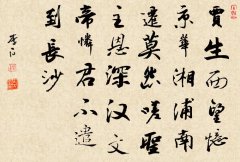 賈生西望憶
京華湘浦南
遷莫怨嗟聖
主恩深汉文
帝憐君不遣
到長沙